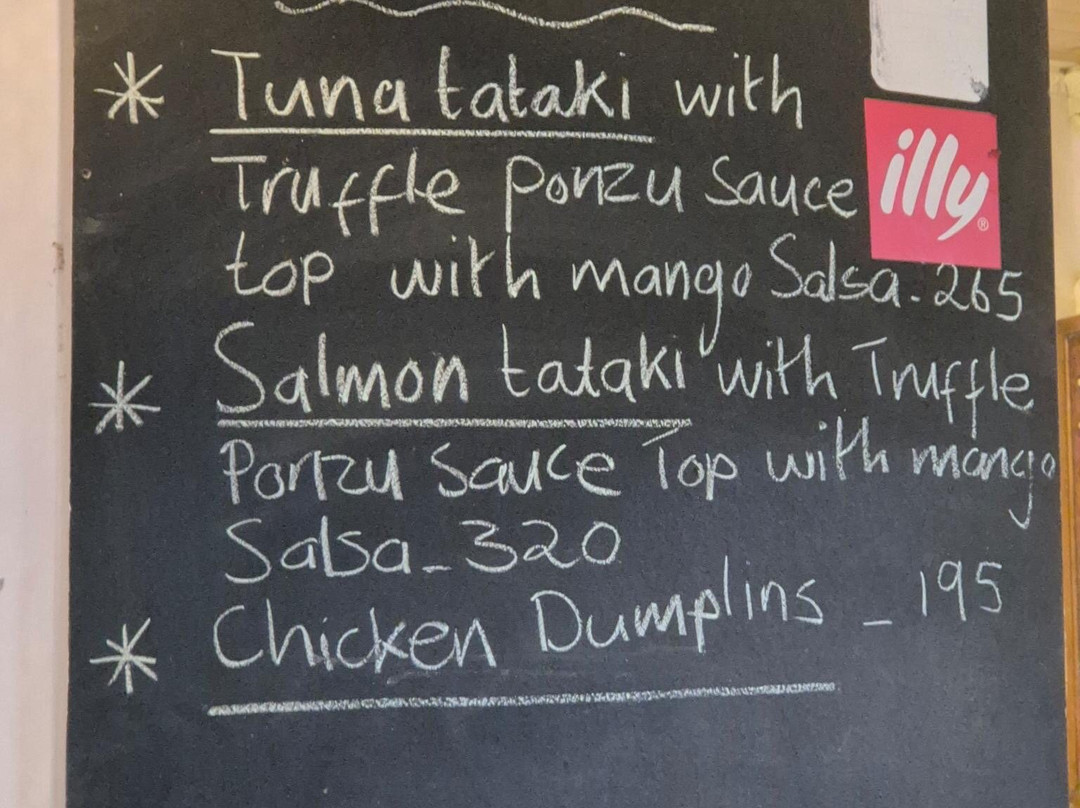 * Tuna tataki with
Truffle Ponzu Sauce
illy®
top with mango Salsa. 265
* Salmon tataki with Truffle
Ponzu Sauce Top with mango
Salsa_320
* Chicken Dumplins _ 195